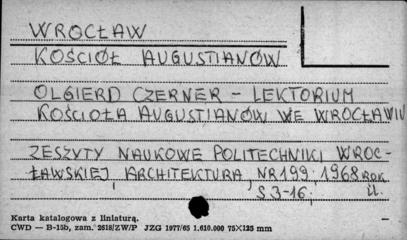 WROCŁAW
KOŚCIÓŁ AUGUSTIANÓW
OLGIERD CZERNER - LEKTORIUM
KOŚCIOŁA AUGUSTIANÓW WE WROCŁAWIU
ZESZYTY NAUKOWE POLITECHNIKI WROC-
ŁAWSKIEJ, ARCHITEKTURA NR 199, 1968 ROK
S 3-16, il.
Karta katalogowa z liniaturą.
CWD — B-15b, zam. 2618/ZW/P JZG 1977/65 1.610.000 75×125 mm